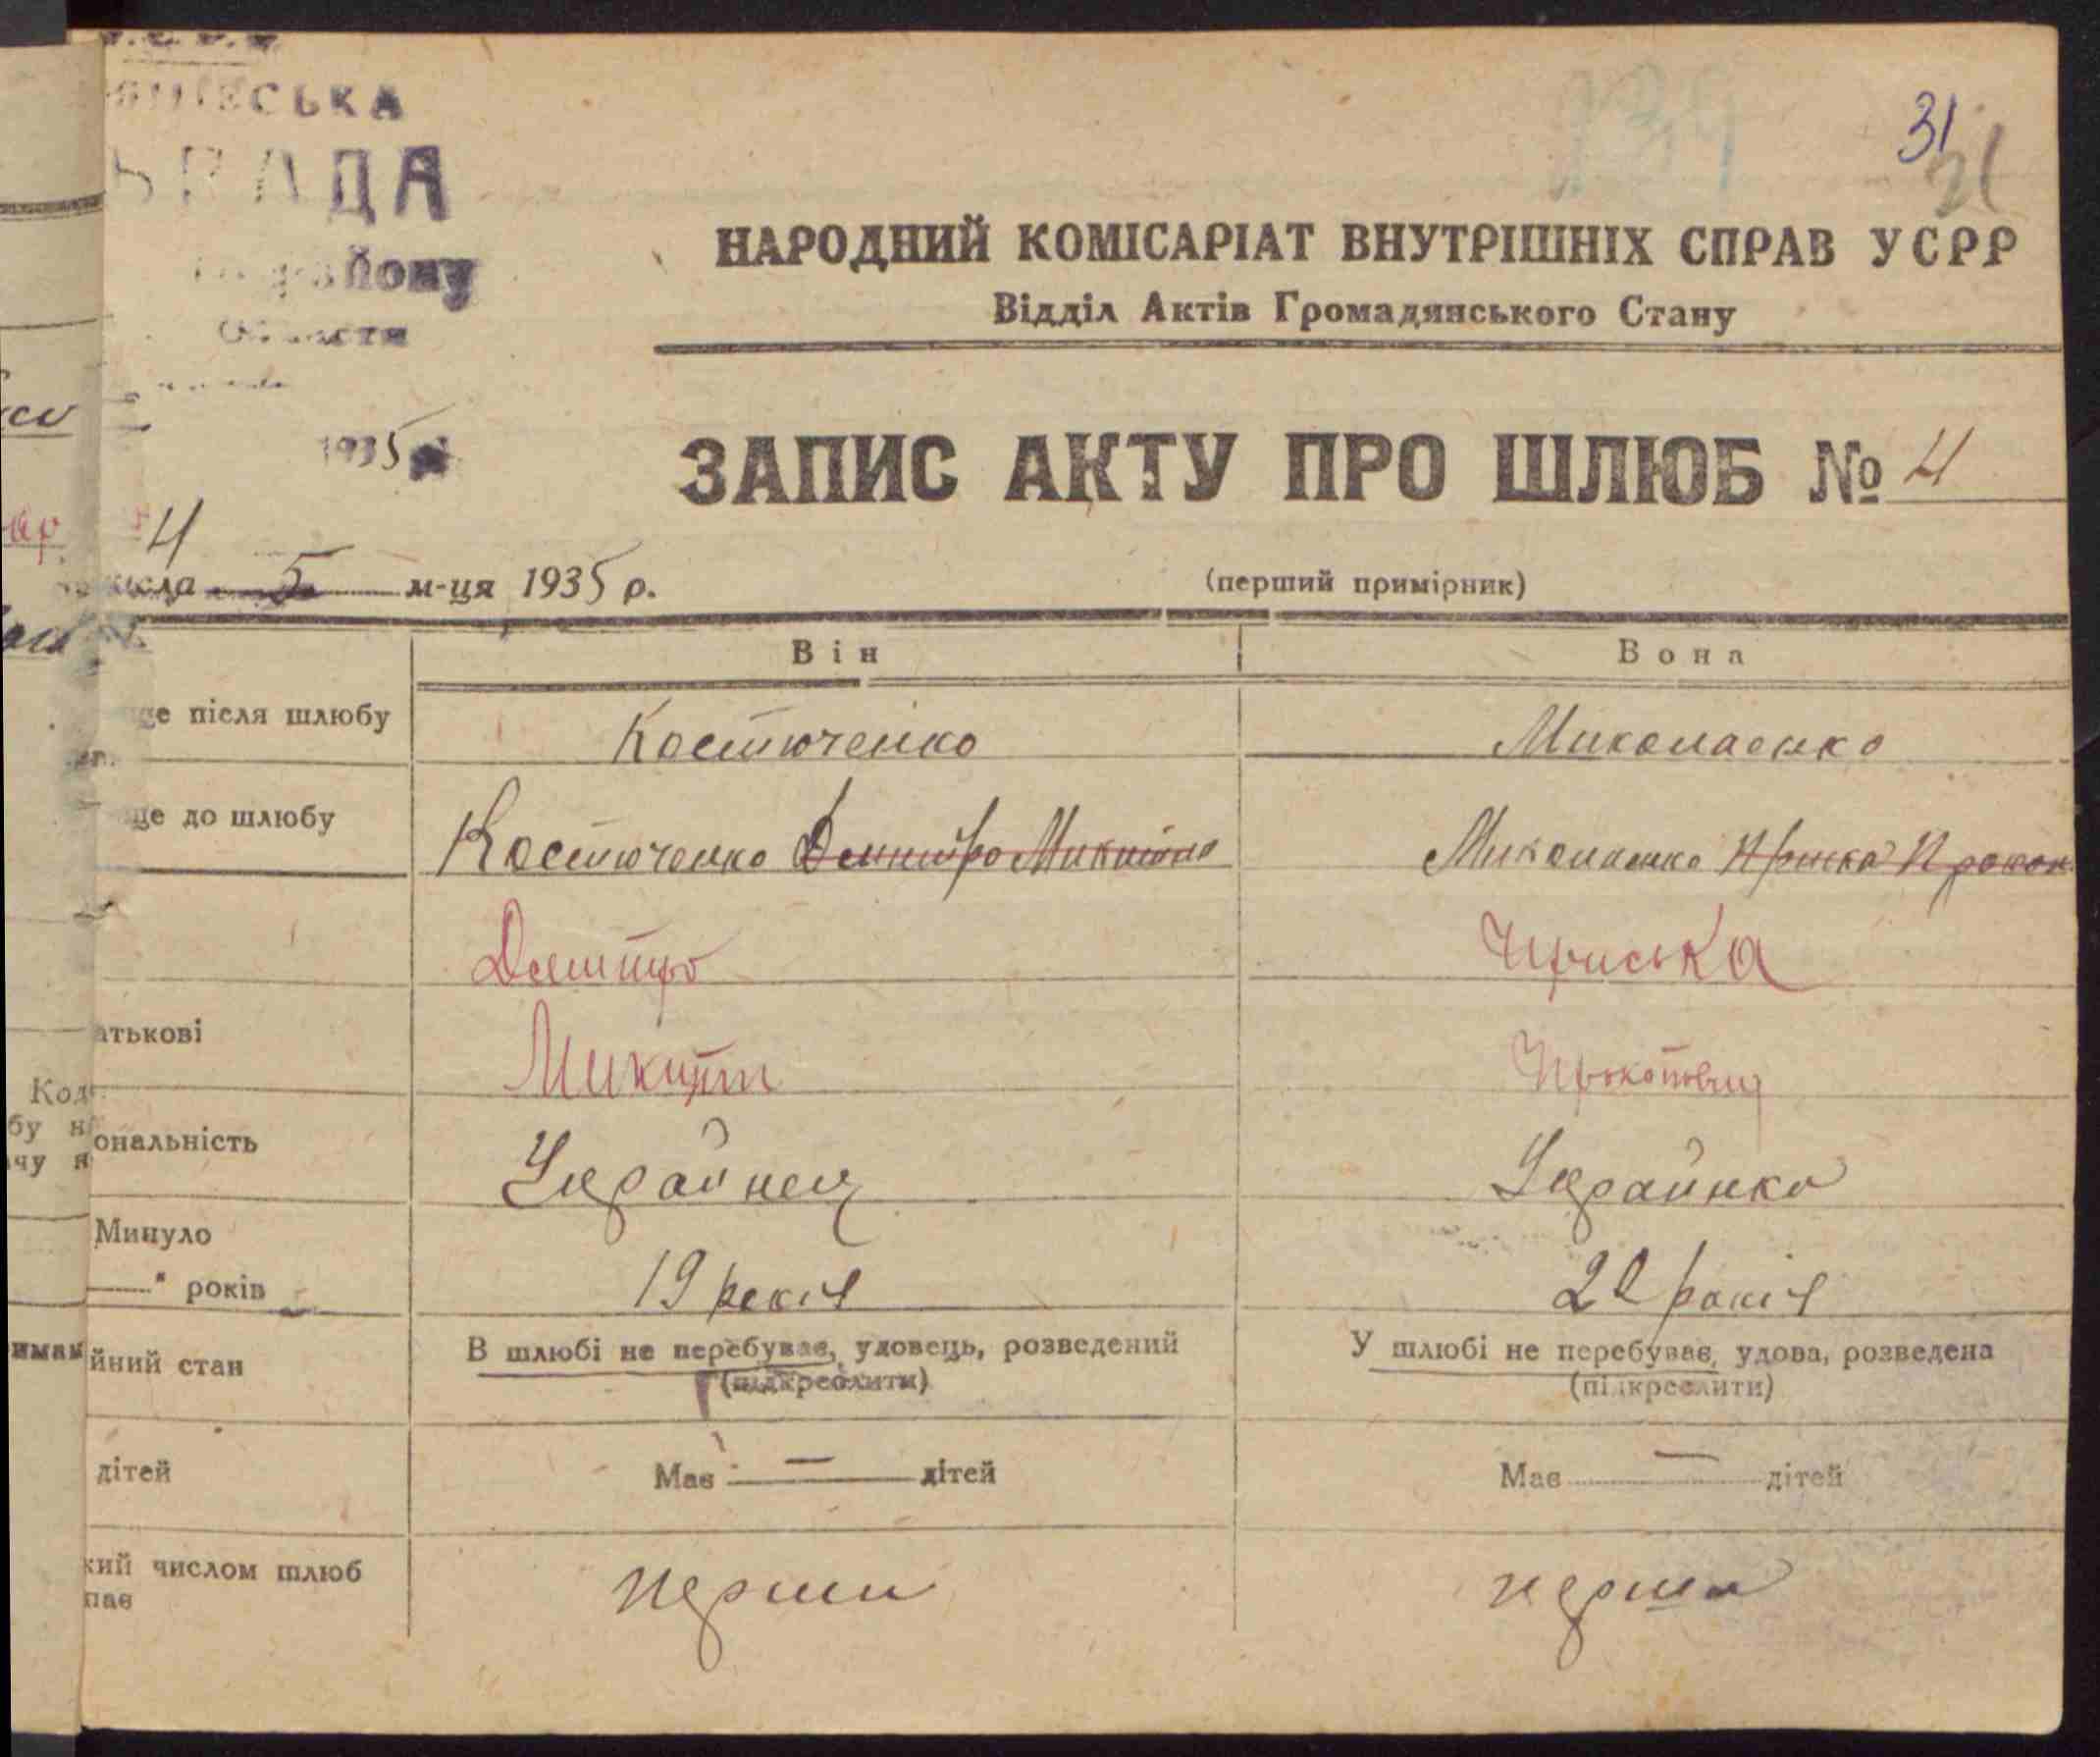 СЬКА
РАДА
району
31
21
НАРОДНИЙ КОМІСАРІАТ ВНУТРІШНІХ СПРАВ УСРР
Відділ Актів Громадянського Стану
1935
ЗАПИС АКТУ ПРО ШЛЮБ № 4
4
числа 5 м-ця 1935 р.
(перший примірник)
Він
Вона
ще після шлюбу
Костюченко
Миколаенко
ще до шлюбу
Костюченко Дмитро Микитов
Миколаенко Приська Прокоп
Дмитро
Приська
атькові
Микит
Прокопович
ональність
Украйнец
Украйнка
Минуло
" років
19 років
20 років
йний стан
В шлюбі не перебуває, удовець, розведений
(підкреслити)
У шлюбі не перебуває, удова, розведена
(підкреслити)
дітей
Має — дітей
Має — дітей
кий числом шлюб
пає
перши
перша